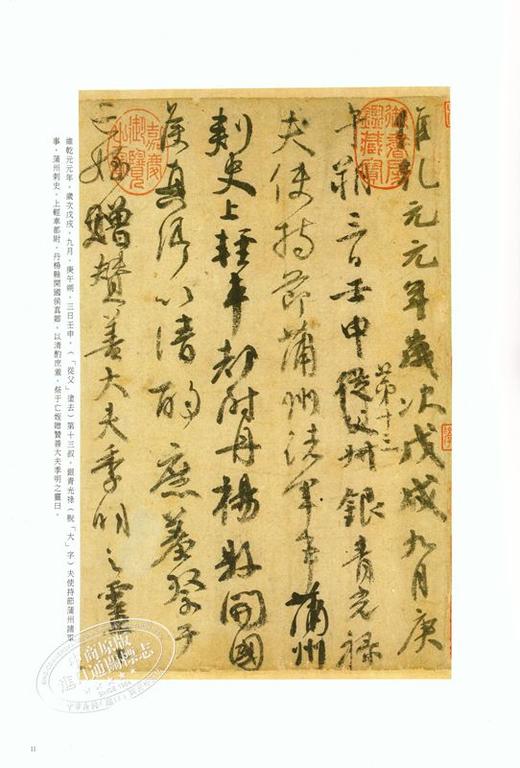 維乾元元年歲次戊戌九月庚
午朔三日壬申從父叔銀青光祿
第十三
夫使持節蒲州諸軍事蒲州
刺史上輕車都尉丹楊縣開國
侯真卿以清酌庶羞祭于
亡姪贈贊善大夫季明之靈
御書房鑑藏寶
嘉慶御覽之寶
維乾元元年，歲次戊戌，九月，庚午朔，三日壬申，（「從父」塗去）第十三叔，銀青光祿（脫「大」字）夫使持節蒲州諸軍
事，蒲州刺史，上輕車都尉，丹楊縣開國侯真卿，以清酌庶羞，祭于亡姪贈贊善大夫季明之靈曰。
11